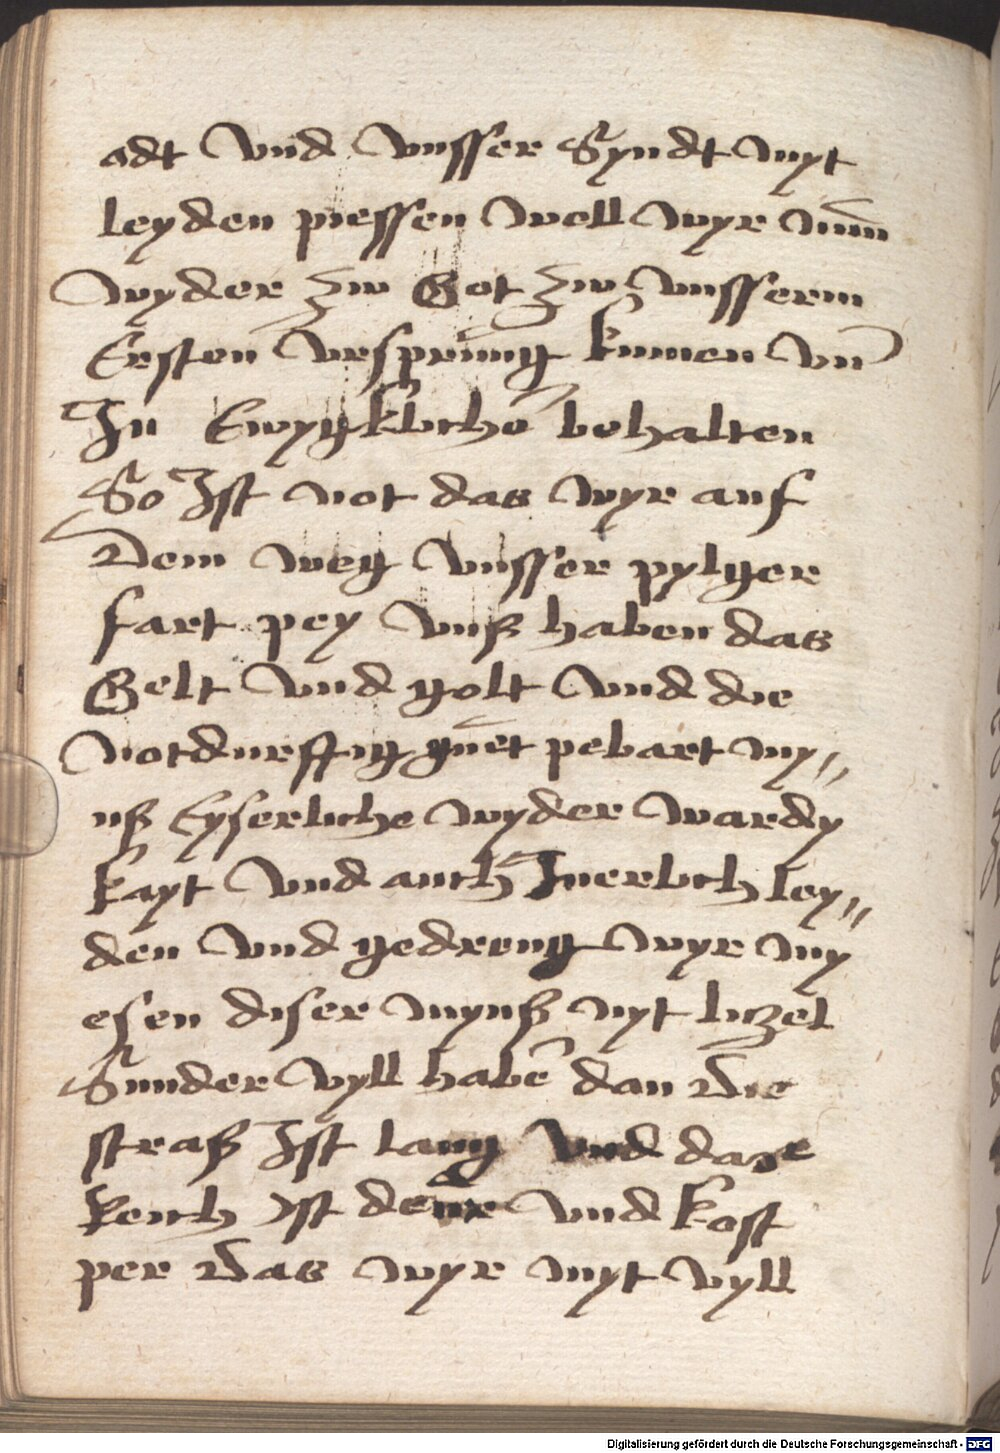 adt vnd vnsser Syndt myt
leyden piessen woll wyr nun̄
wyder zw Got zw vnsserm
Ersten vrsprūng kumen vn̄
In Ewygklichē behalten
So Ist not das wyr auf
Dem weg vnsser pylger
fart pey vnß haben das
Gelt vnd golt vnd die
notdurfftig guet pebart my//
nß Eyserliche wyder wardy
kayt vnd auch Inerlich ley//
den vnd gedreng wyr my
esen diser mynß nyt liczel
Sunder vyll habē dan Die
straß Ist lang vnd daz
Reich Ist deur vnd kost
per Das wyr myt vyll
Digitalisierung gefördert durch die Deutsche Forschungsgemeinschaft - DFG